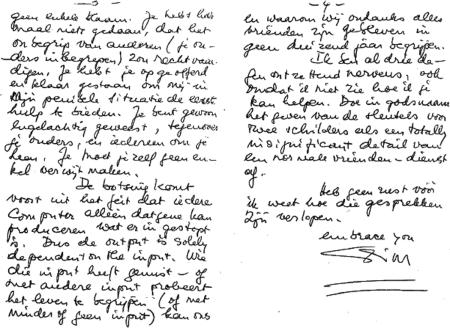 - 3 -
geen enkele blaam. Je hebt hele-
maal niet gedaan, dat het
onbegrip van anderen (je ou-
ders inbegrepen) zou rechtvaar-
digen, Je hebt je opgeofferd
en klaar gestaan om mij in
mijn penibele situatie de eerste
hulp te bieden. Je bent gewoon
hoogachtig geweest, tegenover
je ouders, en iedereen om je
heen. Je moet jezelf geen en-
kel verwijt maken.
De botsing komt
voort uit het feit dat iedere
Computer alleen datgene kan
produceren wat er in gestopt
is. Dus de output is solely
dependent on the input. Wie
die input heeft gemist - of
met andere input probeert
het leven te begrijpen (of met
minder of geen input) kan ons
- 4 -
en waarom wij ondanks alles
vrienden zijn gebleven in
geen duizend jaar begrijpen.
Ik ben al drie da-
gen ontzettend nerveus, ook
omdat ik niet zie hoe ik je
kan helpen. Doe in godsnaam
het geven van de sleutels voor
twee schilders als een totally
insignificant detail van
een normale vrienden-dienst
af.
Heb geen rust vóór
ik weet hoe die gesprekken
zijn verlopen.
embrace you